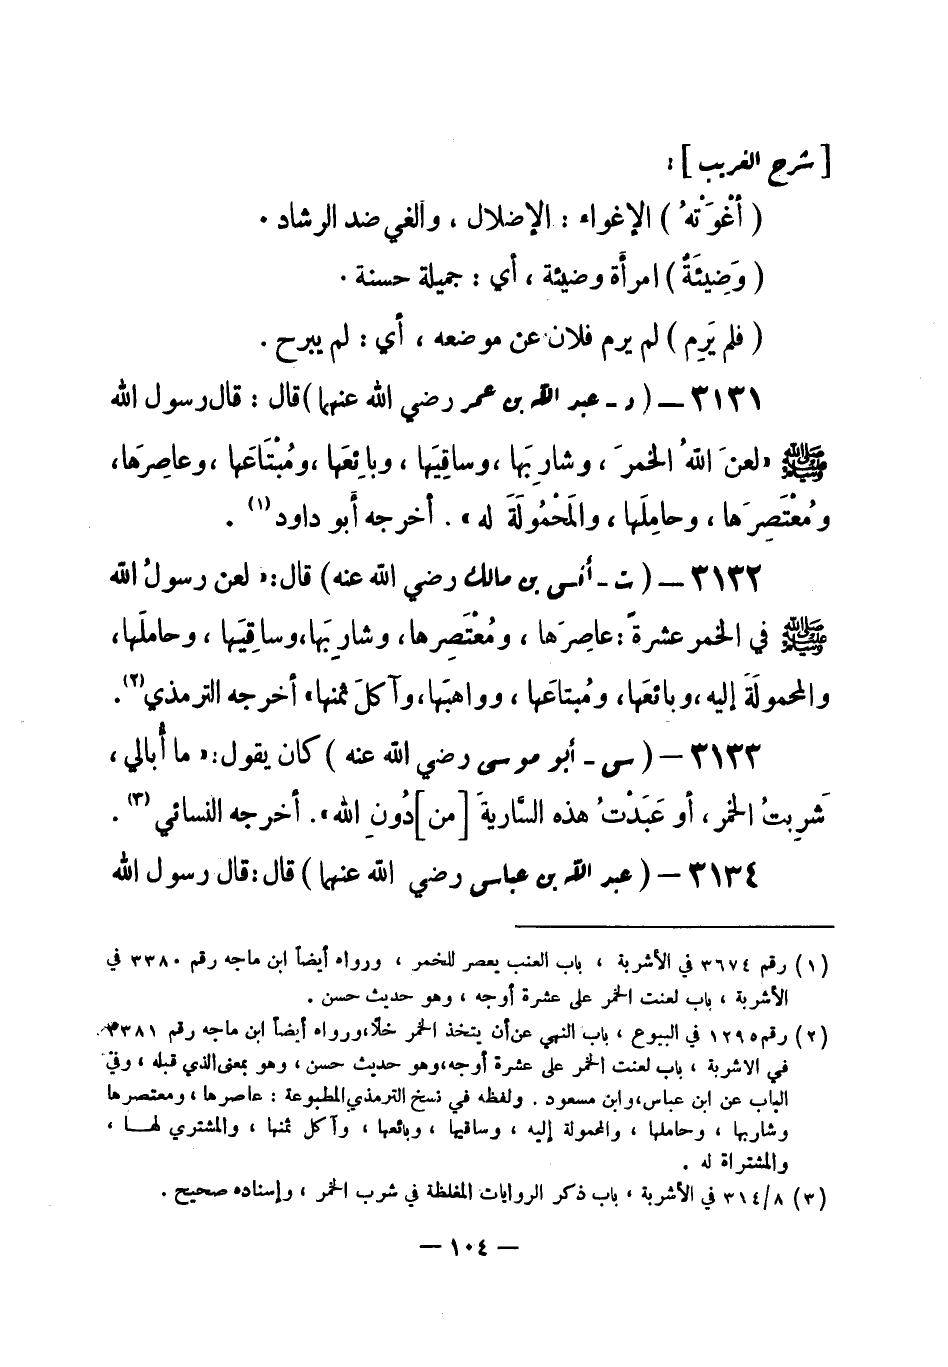 [ شرح الغريب ] :
( أَغْوَتْهُ ) الإغواء : الإضلال ، والغي ضد الرشاد .
( وَضِيئَةٌ ) امرأة وضيئة ، أي : جميلة حسنة .
( فلم يَرِم ) لم يرم فلان عن موضعه ، أي : لم يبرح .
٣١٣١ – ( د ـ عبد الله بن عمر رضي الله عنهما ) قال : قال رسول الله
ﷺ « لعنَ اللهُ الخمرَ ، وشارِبَها ، وساقِيَها ، وبائِعَها ، ومُبْتَاعَها ، وعاصِرَها ،
ومُعْتَصِرَها ، وحامِلَها ، والمَحْمُولَةَ له » . أخرجه أبو داود (١) .
٣١٣٢ – ( ت ـ أنس بن مالك رضي الله عنه ) قال : « لعن رسولُ الله
ﷺ في الخمر عشرةً : عاصِرَها ، ومُعْتَصِرها ، وشارِبَها ، وساقِيَها ، وحاملَها ،
والمحمولَةَ إليه ، وبائعَها ، ومُبتاعَها ، وواهبَها ، وآكلَ ثمنها » أخرجه الترمذي (٢) .
٣١٣٣ – ( س ـ أبو موسى رضي الله عنه ) كان يقول : « ما أُبالي ،
شَرِبتُ الخمر ، أو عَبَدْتُ هذه السَّاريةَ [ من ] دُونِ الله » . أخرجه النسائي (٣) .
٣١٣٤ – ( عبد الله بن عباس رضي الله عنهما ) قال : قال رسول الله
(١) رقم ٣٦٧٤ في الأشربة ، باب العنب يعصر للخمر ، ورواه أيضاً ابن ماجه رقم ٣٣٨٠ في
الأشربة ، باب لعنت الخمر على عشرة أوجه ، وهو حديث حسن .
(٢) رقم ١٢٩٥ في البيوع ، باب النهي عن أن يتخذ الخمر خلاً ، ورواه أيضاً ابن ماجه رقم ٣٣٨١
في الاشربة ، باب لعنت الخمر على عشرة أوجه ، وهو حديث حسن ، وهو بمعنى الذي قبله ، وفي
الباب عن ابن عباس ، وابن مسعود . ولفظه في نسخ الترمذي المطبوعة : عاصرها ، ومعتصرها
وشاربها ، وحاملها ، والمحمولة إليه ، وساقيها ، وبائعها ، وآكل ثمنها ، والمشتري لهـا ،
والمشتراة له .
(٣) ٣١٤/٨ في الأشربة ، باب ذكر الروايات المغلظة في شرب الخمر ، وإسناده صحيح .
– ١٠٤ –